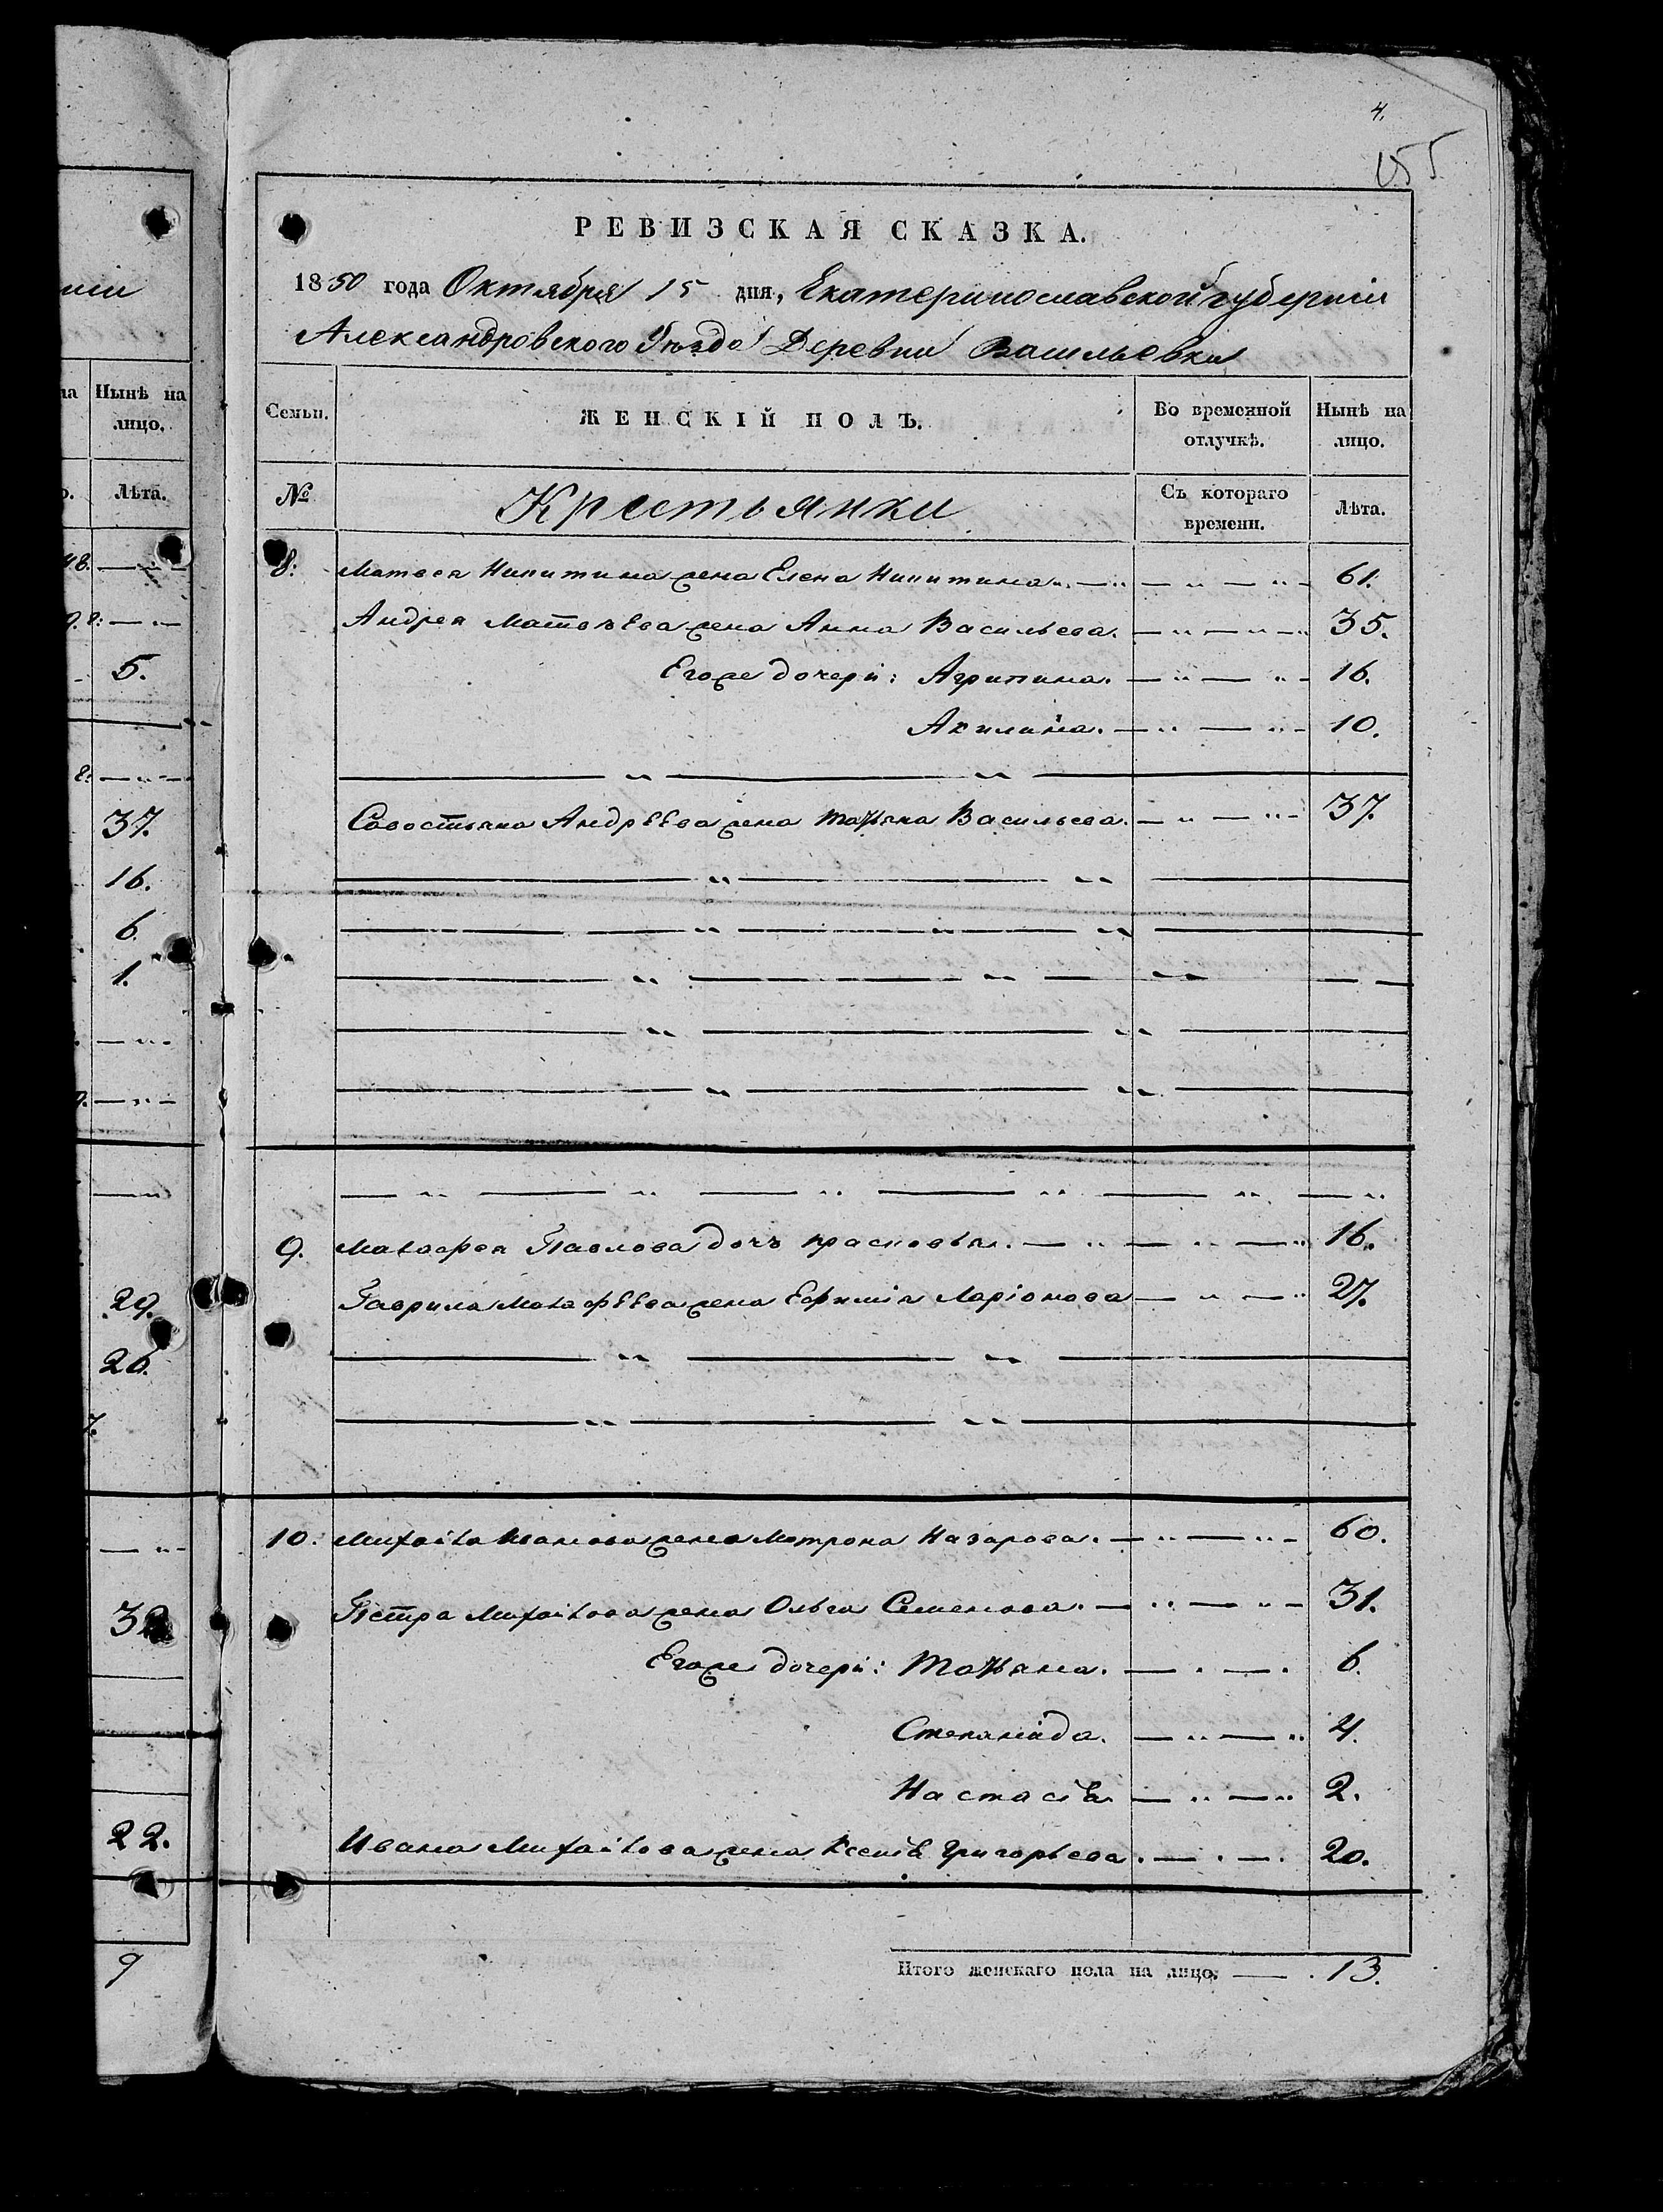 4.
155
РЕВИЗСКАЯ СКАЗКА.
1850 года Октября 15 дня, Екатеринославской губерніи
Александровского Уѣзда Деревни Васильевки
Семьи. ЖЕНСКІЙ ПОЛЪ. Во временной отлучкѣ. Нынѣ на лицо.
№ Крестьянки Съ котораго времени. Лѣта.
8. Матвея Никитина жена Елена Никитина. 61.
Андрея Матвѣева жена Анна Васильева. 35.
Его же дочери: Агрипина. 16.
Акилина. 10.
Савостьяна Андрѣева жена Татьяна Васильева. 37.
9. Макафея Павлова дочь Прасковья. 16.
Гаврила Макафѣева жена Ефимія Ларіонова 27.
10. Михайла Иванова жена Матрона Назарова. 60.
Петра Михайлова жена Ольга Семенова. 31.
Его же дочери: Татьяна. 6.
Степанида. 4.
Настасія 2.
Ивана Михайлова жена Ксенія Григорьева. 20.
Итого женскаго пола на лицо. 13.
Нынѣ на лицо.
Лѣта.
5.
37.
16.
6.
1.
29.
26.
22.
9